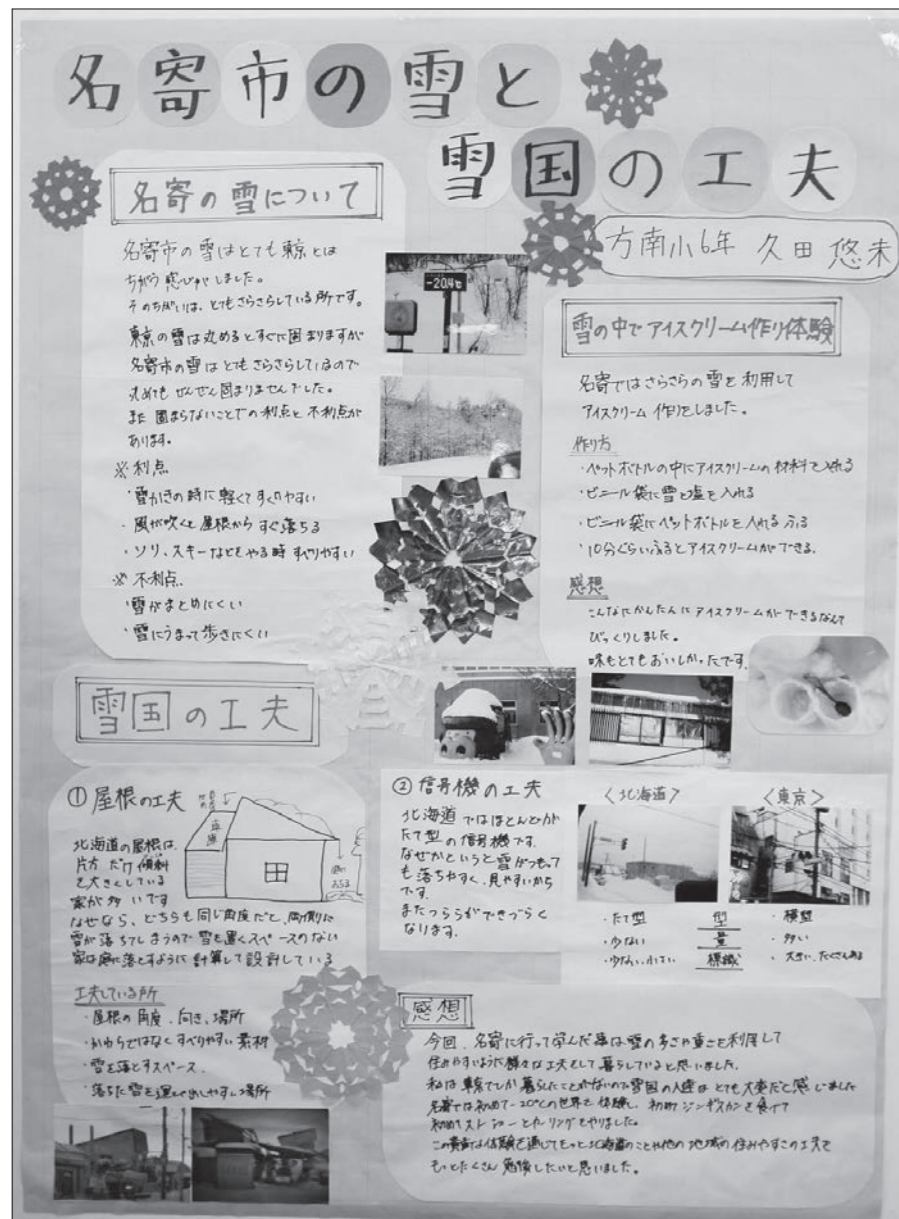 名寄市の雪と
雪国の工夫
方南小6年 久田 悠未
名寄の雪について
名寄市の雪はとても東京とは
ちがう感じがしました。
そのちがいは、とてもさらさらしている所です。
東京の雪は丸めるとすぐに固まりますが
名寄市の雪はとてもさらさらしているので
丸めてもぜんぜん固まりませんでした。
また固まらないことでの利点と不利点が
あります。
※利点
・雪かきの時に軽くてすくいやすい
・風が吹くと屋根からすぐ落ちる
・ソリ、スキーなどをやる時すべりやすい
※不利点
・雪がまとめにくい
・雪にうまって歩きにくい
-20.4℃
雪の中でアイスクリーム作り体験
名寄ではさらさらの雪を利用して
アイスクリーム作りをしました。
作り方
・ペットボトルの中にアイスクリームの材料を入れる
・ビニール袋に雪と塩を入れる
・ビニール袋にペットボトルを入れる ふる
・10分ぐらいふるとアイスクリームができる。
感想
こんなにかんたんにアイスクリームができるなんて
びっくりしました。
味もとてもおいしかったです。
雪国の工夫
①屋根の工夫
車庫
北海道の屋根は、
片方だけ傾斜
を大きくしている
家が多いです
なぜなら、どちらも同じ角度だと、両側に
雪が落ちてしまうので雪を置くスペースのない
家は庭に落とすように計算して設計している
工夫している所
・屋根の角度、向き、場所
・かわらではなくすべりやすい素材
・雪を落とすスペース
・落ちた雪を運び出しやすい場所
②信号機の工夫
北海道ではほとんどが
たて型の信号機です。
なぜかというと雪がつもって
も落ちやすく、見やすいから
です。
またつららができづらく
なります。
〈北海道〉 〈東京〉
・たて型 型 ・横型
・少ない 量 ・多い
・少ない、小さい 標識 ・大きい、たくさんある
感想
今回、名寄に行って学んだ事は雪の多さや重さを利用して
住みやすいように様々な工夫をして暮らしていると思いました。
私は東京でしか暮らしたことがないので雪国の人達はとても大変だと感じました
名寄では初めて-20℃の世界を体験し、初めてジンギスカンを食べて
初めてストーンとカーリングをやりました。
この貴重な体験を通じてもっと北海道のことや他の地域の住みやすさの工夫を
もっとたくさん勉強したいと思いました。